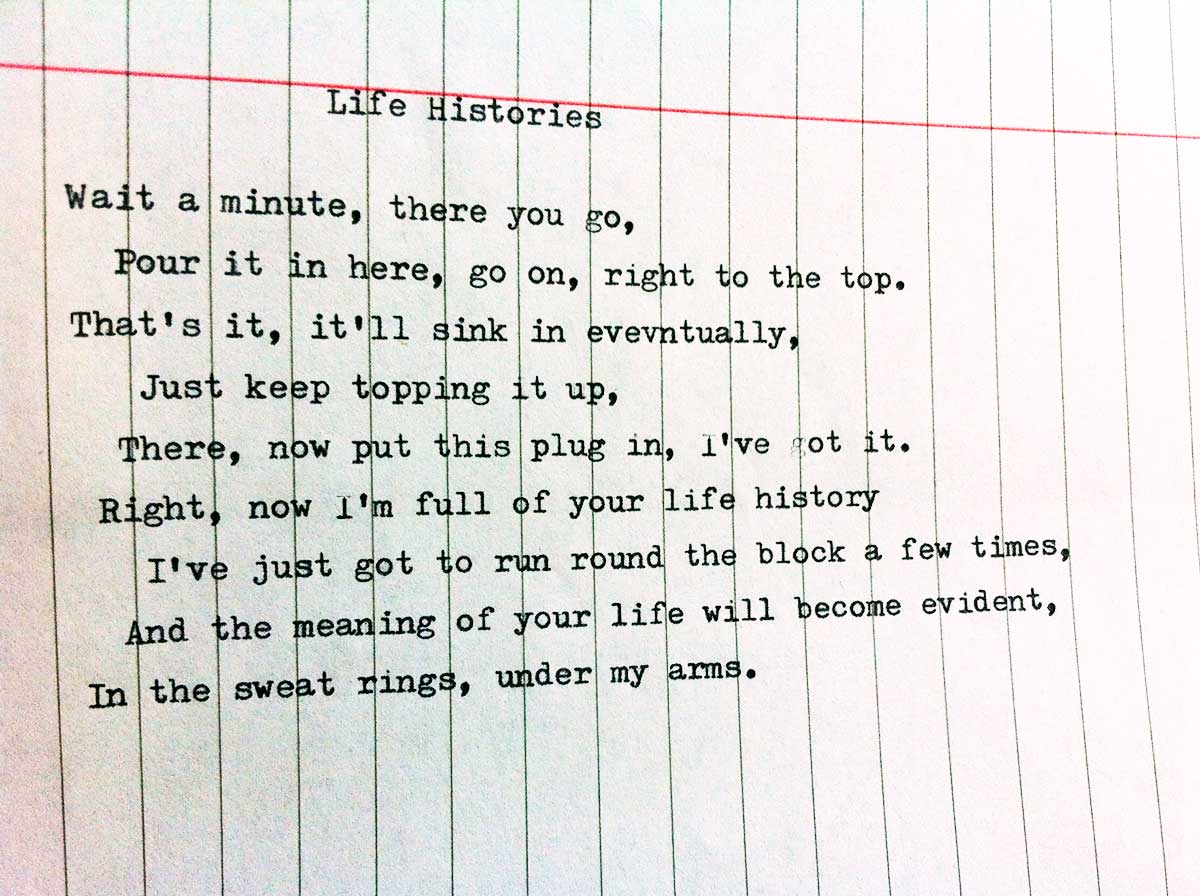 Life Histories
Wait a minute, there you go,
Pour it in here, go on, right to the top.
That's it, it'll sink in evevntually,
Just keep topping it up,
There, now put this plug in, I've got it.
Right, now I'm full of your life history
I've just got to run round the block a few times,
And the meaning of your life will become evident,
In the sweat rings, under my arms.